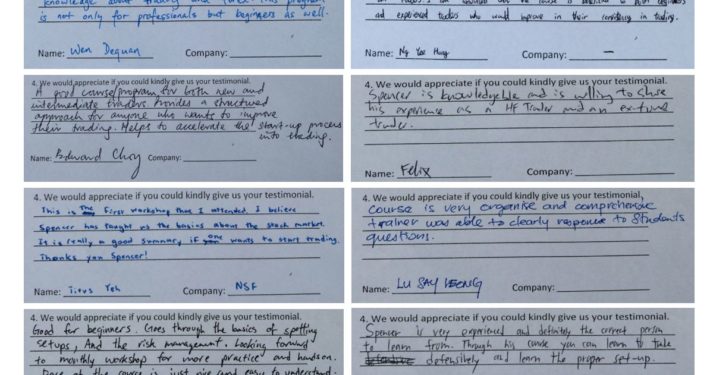 knowledge about trading and forex. This program
is not only for professionals but beginners as well.
Name: Wen Dequan Company:
and experienced traders who would improve in their consistency in trading.
Name: Company: —
4. We would appreciate if you could kindly give us your testimonial.
A good course/program for both new and
intermediate traders. Provides a structured
approach for anyone who wants to improve
their trading. Helps to accelerate the start-up process
into trading.
Name: Edward Choy Company:
4. We would appreciate if you could kindly give us your testimonial.
Spencer is knowledgeable and is willing to share
his experience as a HF Trader and an ex-fund
trader.
Name: Felix Company:
4. We would appreciate if you could kindly give us your testimonial.
This is the first workshop that I attended. I believe
Spencer has taught us the basics about the stock market.
It is really a good summary if one wants to start trading.
Thanks you Spencer!
Name: Titus Yeh Company: NSF
4. We would appreciate if you could kindly give us your testimonial.
course is very organise and comprehensive
trainer was able to clearly response to students
questions.
Name: LU SAY Company:
4. We would appreciate if you could kindly give us your testimonial.
Good for beginners. Goes through the basics of spotting
setups, And the risk management. Looking forward
to monthly workshop for more practice and handson.
Pace of the course is just nice and easy to understand.
4. We would appreciate if you could kindly give us your testimonial.
Spencer is very experienced and definitely the correct person
to learn from. Through his course you can learn to take
defensively and learn the proper set-up.